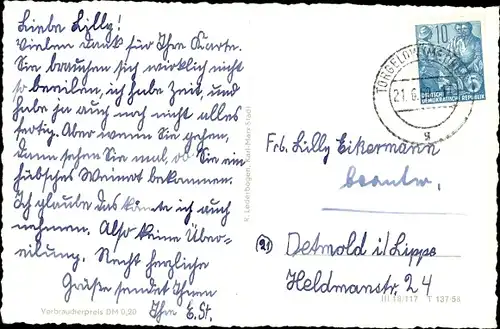 Liebe Lilly!
Vielen Dank für Ihre Karte.
Sie brauchen sich wirklich nicht
so beeilen, ich habe Zeit, und
habe ja auch noch nicht alles
fertig. Aber wenn Sie gehen,
dann sehen Sie mal, ob Sie ein
hübsches Weinrot bekommen.
Ich glaube das könnte ich auch
nehmen. Also keine Über-
eilung. Recht herzliche
Grüße sendet Ihnen
Ihre E. St.
Verbraucherpreis DM 0,20
K. Lederbogen, Karl-Marx-Stadt
10
DEUTSCHE
DEMOKRATISCHE REPUBLIK
TORGELOW
21.6.
g
Frl. Lilly Eikermann
beantw.
(21) Detmold i/Lippe
Heldmanstr. 24
III 18/117 T 137 58